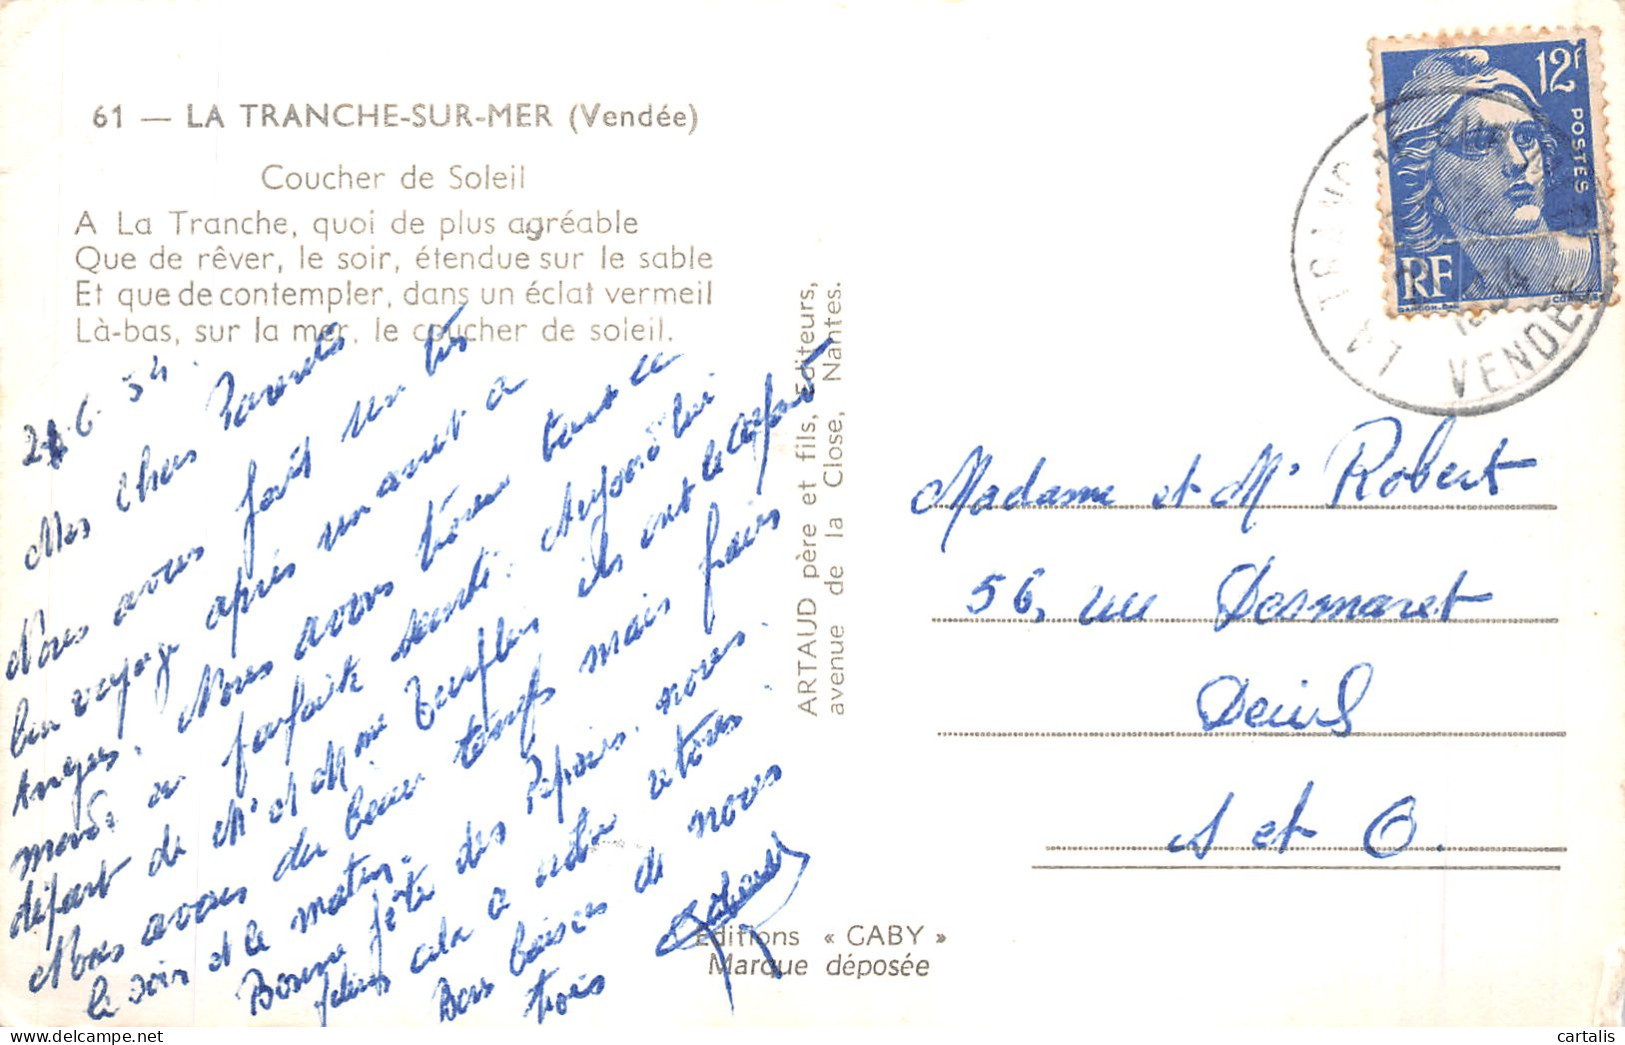 61 — LA TRANCHE-SUR-MER (Vendée)
Coucher de Soleil
A La Tranche, quoi de plus agréable
Que de rêver, le soir, étendue sur le sable
Et que de contempler, dans un éclat vermeil
Là-bas, sur la mer, le coucher de soleil.
6. 54.
Mes chers Parents
Nous avons fait un très
bon voyage après un arret a
Angers. Nous avons trouvé tout le
monde en parfaite santé. Aujourd'hui
départ de Mr et Mme ils ont le
Nous avons du beau temps mais frais
le soir et le matin.
Bonne fête des Papas. nous
cela a notre retour
Bons baisers de nous
trois
ARTAUD père et fils, Editeurs,
avenue de la Close, Nantes.
Editions « GABY »
Marque déposée
12F
POSTES
RF
LA TRANCHE
VENDEE
Madame et Mr Robert
56, rue Desmaret
Deuil
S et O.
cartalis